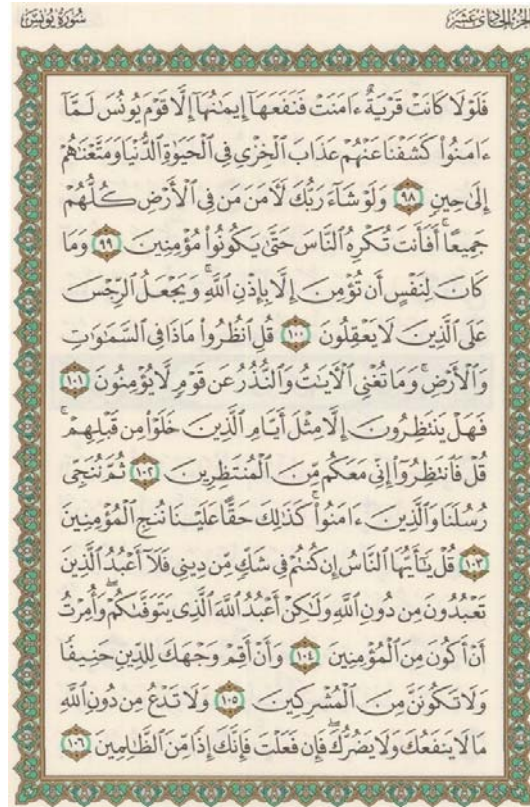 سُورَةُ يُونُسَ
الجُزْءُ الحَادِي عَشَرَ
فَلَوْلَا كَانَتْ قَرْيَةٌ ءَامَنَتْ فَنَفَعَهَآ إِيمَٰنُهَآ إِلَّا قَوْمَ يُونُسَ لَمَّآ
ءَامَنُوا۟ كَشَفْنَا عَنْهُمْ عَذَابَ ٱلْخِزْىِ فِى ٱلْحَيَوٰةِ ٱلدُّنْيَا وَمَتَّعْنَٰهُمْ
إِلَىٰ حِينٍ ٩٨ وَلَوْ شَآءَ رَبُّكَ لَءَامَنَ مَن فِى ٱلْأَرْضِ كُلُّهُمْ
جَمِيعًا ۚ أَفَأَنتَ تُكْرِهُ ٱلنَّاسَ حَتَّىٰ يَكُونُوا۟ مُؤْمِنِينَ ٩٩ وَمَا
كَانَ لِنَفْسٍ أَن تُؤْمِنَ إِلَّا بِإِذْنِ ٱللَّهِ ۚ وَيَجْعَلُ ٱلرِّجْسَ
عَلَى ٱلَّذِينَ لَا يَعْقِلُونَ ١٠٠ قُلِ ٱنظُرُوا۟ مَاذَا فِى ٱلسَّمَٰوَٰتِ
وَٱلْأَرْضِ ۚ وَمَا تُغْنِى ٱلْءَايَٰتُ وَٱلنُّذُرُ عَن قَوْمٍ لَّا يُؤْمِنُونَ ١٠١
فَهَلْ يَنتَظِرُونَ إِلَّا مِثْلَ أَيَّامِ ٱلَّذِينَ خَلَوْا۟ مِن قَبْلِهِمْ ۚ
قُلْ فَٱنتَظِرُوٓا۟ إِنِّى مَعَكُم مِّنَ ٱلْمُنتَظِرِينَ ١٠٢ ثُمَّ نُنَجِّى
رُسُلَنَا وَٱلَّذِينَ ءَامَنُوا۟ ۚ كَذَٰلِكَ حَقًّا عَلَيْنَا نُنجِ ٱلْمُؤْمِنِينَ
١٠٣ قُلْ يَٰٓأَيُّهَا ٱلنَّاسُ إِن كُنتُمْ فِى شَكٍّ مِّن دِينِى فَلَآ أَعْبُدُ ٱلَّذِينَ
تَعْبُدُونَ مِن دُونِ ٱللَّهِ وَلَٰكِنْ أَعْبُدُ ٱللَّهَ ٱلَّذِى يَتَوَفَّىٰكُمْ ۖ وَأُمِرْتُ
أَنْ أَكُونَ مِنَ ٱلْمُؤْمِنِينَ ١٠٤ وَأَنْ أَقِمْ وَجْهَكَ لِلدِّينِ حَنِيفًا
وَلَا تَكُونَنَّ مِنَ ٱلْمُشْرِكِينَ ١٠٥ وَلَا تَدْعُ مِن دُونِ ٱللَّهِ
مَا لَا يَنفَعُكَ وَلَا يَضُرُّكَ ۖ فَإِن فَعَلْتَ فَإِنَّكَ إِذًا مِّنَ ٱلظَّٰلِمِينَ ١٠٦